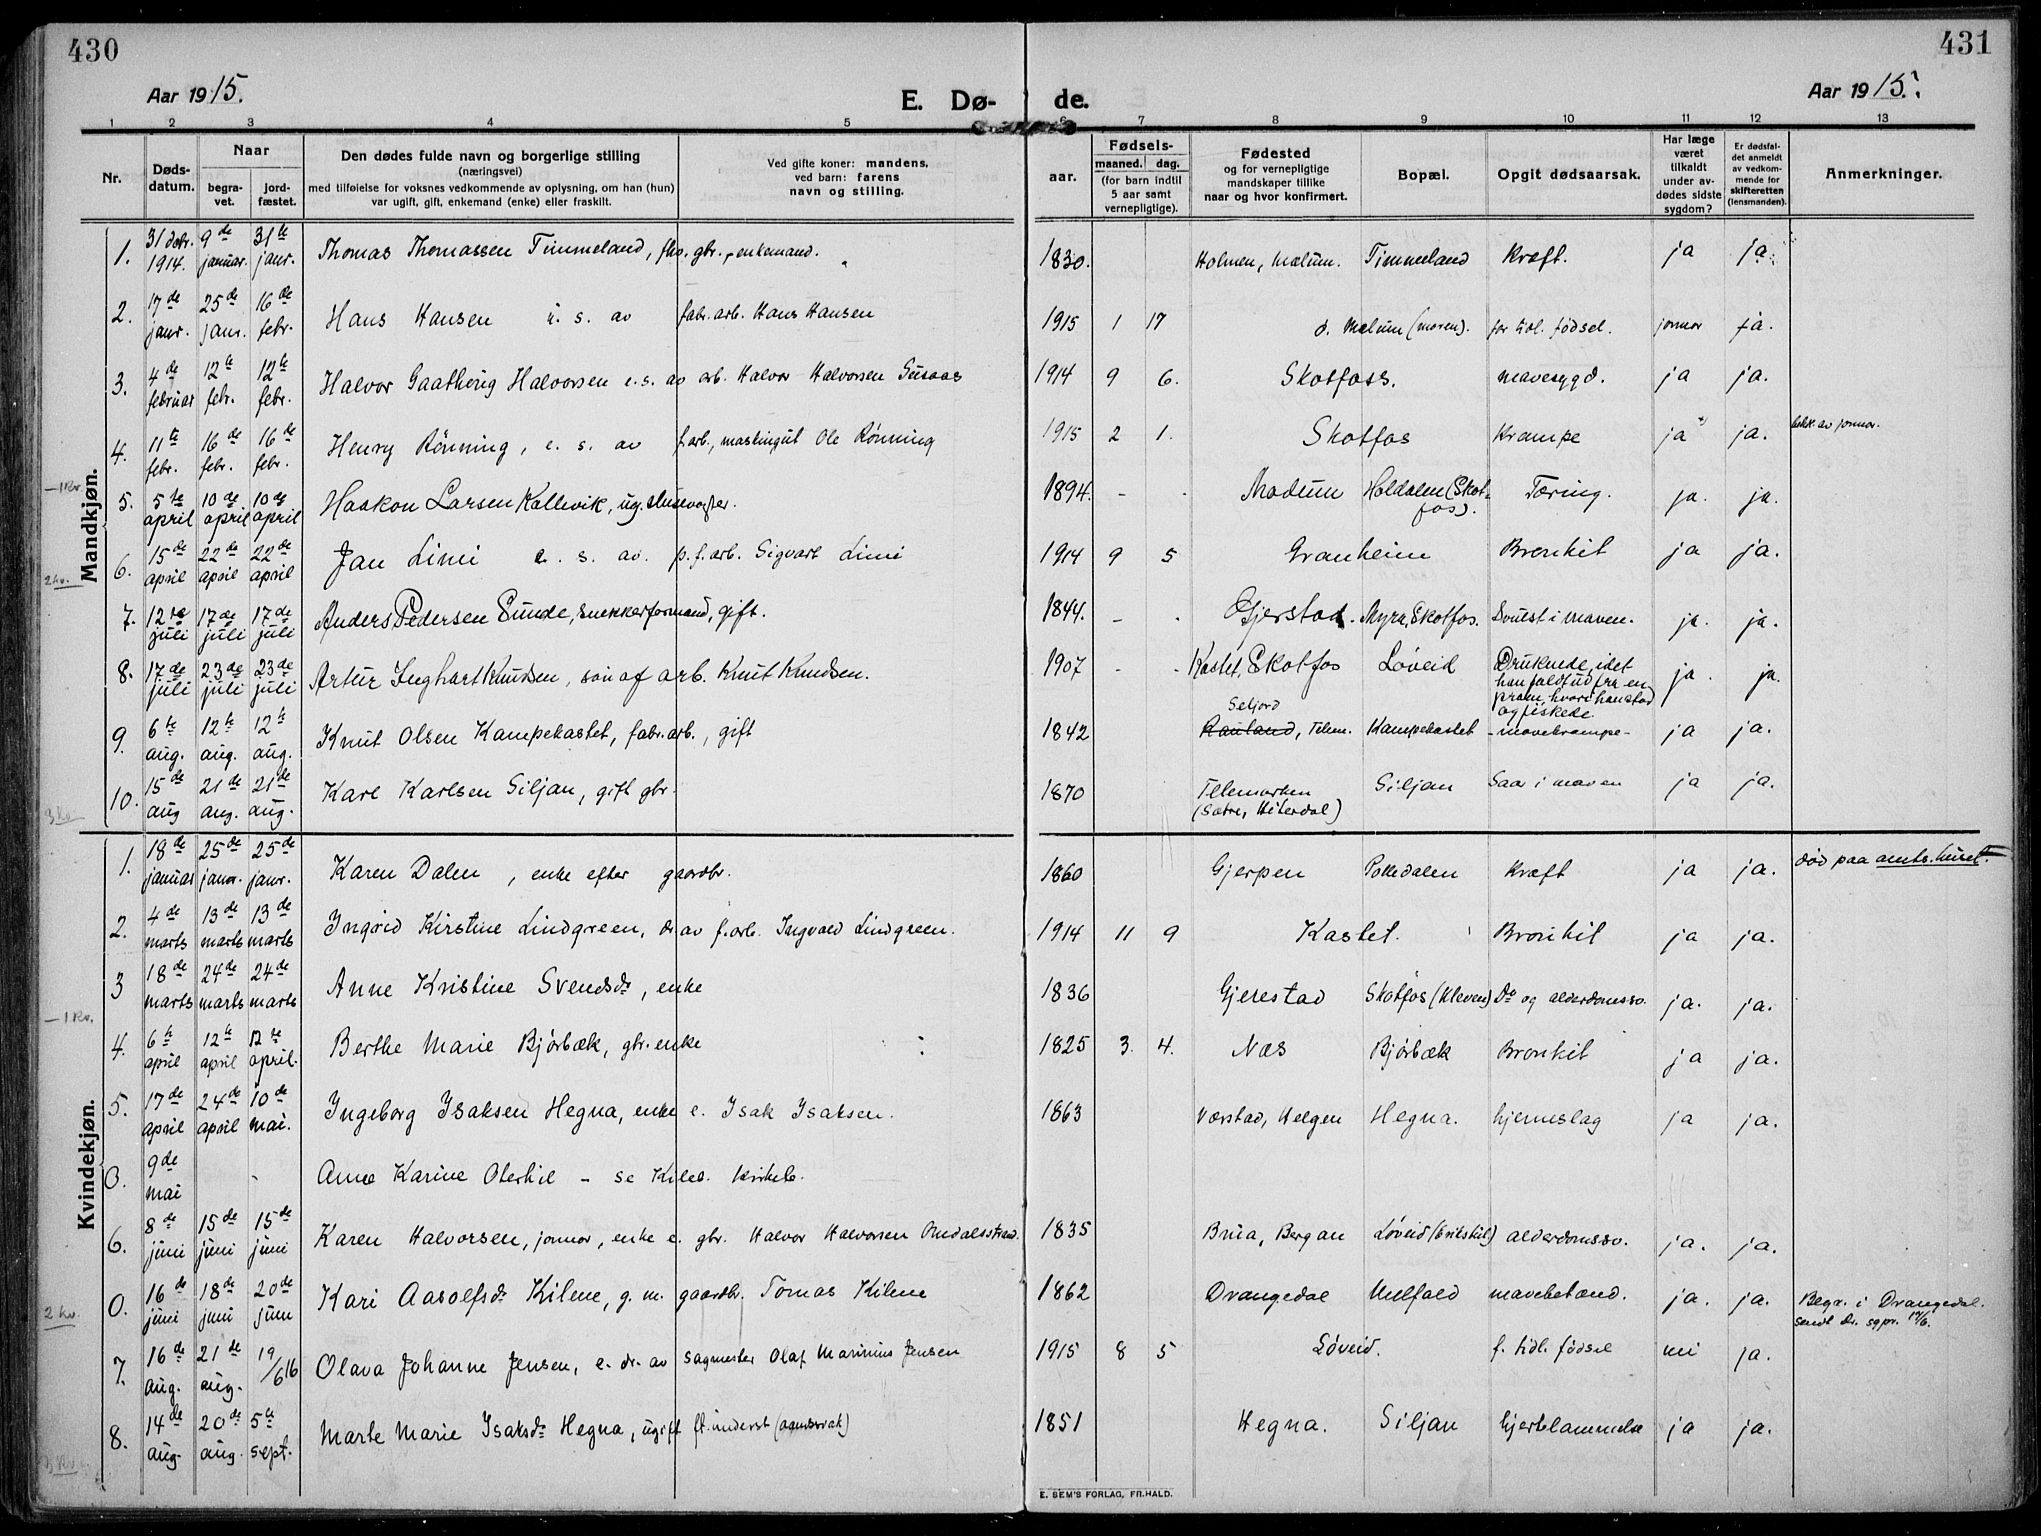 430
431
Aar 1915.
E. Dø-
de.
Aar 1915.
1 2 3 4 5 6 7 8 9 10 11 12 13
Nr.
Døds-
datum.
Naar
begra-
vet.
jord-
fæstet.
Den dødes fulde navn og borgerlige stilling
(næringsvei)
med tilføielse for voksnes vedkommende av oplysning, om han (hun)
var ugift, gift, enkemand (enke) eller fraskilt.
Ved gifte koner: mandens,
ved barn: farens
navn og stilling.
Fødsels-
aar.
maaned. dag.
(for barn indtil
5 aar samt
vernepligtige).
Fødested
og for vernepligtige
mandskaper tillike
naar og hvor konfirmert.
Bopæl.
Opgit dødsaarsak.
Har læge
været
tilkaldt
under av-
dødes sidste
sygdom?
Er dødsfal-
det anmeldt
av vedkom-
mende for
skifteretten
(lensmanden).
Anmerkninger.
Mandkjøn.
1. 31 decbr. 1914. 9de januar. 31te janr. Thomas Thomassen Timmeland, fhv. gbr., enkemand. 1830. Holmen, Melum. Timmeland Kræft. ja ja.
2. 17de janr. 25de janr. 16de febr. Hans Hansen u. s. av fabr. arb. Hans Hansen 1915 1 17 d. Melum (moren). for tidl. fødsel. jormor ja.
3. 4de februar 12te febr. 12te febr. Halvor Gaatherig Halvorsen e. s. av arb. Halvor Halvorsen Gusaas 1914 9 6. Skotfoss. mavesygd. ja ja.
4. 11te febr. 16de febr. 16de febr. Henry Rønning, e. s. av f. arb., maskingut Ole Rønning 1915 2 1. Skotfos Krampe ja ja. bekr. av jormor.
— 1 Kv.
5. 5te april 10de april 10de april Haakon Larsen Kallevik, ug. slusevogter. 1894. - - Modum Holdalen (Skot-
fos). Tæring. ja. ja.
2 kv.
6. 15de april 22de april 22de april Jan Limi e. s. av. p. f. arb. Sigvart Limi 1914 9 5 Granheim Bronkit ja ja.
7. 12te juli 17de juli 17de juli Anders Pedersen Sunde, snekkerformand, gift. 1844. - - Gjerstad. Myra, Skotfos. Svulst i maven. ja. ja.
8. 17de juli 23de juli 23de juli Artur Inghart Knudsen, søn af arb. Knut Knudsen. 1907 - - Kastet, Skotfos Løveid Druknede, idet
han faldt ud fra en
pram, hvori han stod
og fiskede. ja. ja.
9. 6te aug. 12te aug. 12te aug. Knut Olsen Kampekastet, fabr. arb., gift 1842 Seljord
Rauland, Telem. Kampekastet - mavekrampe - ja ja.
10. 15de aug 21de aug. 21de aug. Karl Karlsen Siljan, gift gbr. 1870 Telemarken
(Sætre, Hiterdal) Siljan Saar i maven ja ja.
3 Kv.
Kvindekjøn.
1. 18de januar 25de janr. 25de janr. Karen Dalen, enke efter gaardbr. 1860 Gjerpen Polledalen Kræft ja ja. død paa amts. huset.
2. 4de marts 13de marts 13de marts Ingrid Kirstine Lindgreen, dr. av f. arb. Ingvald Lindgreen. 1914 11 9 Kastet. Bronkit ja ja.
3 18de marts 24de marts 24de marts Anne Kristine Svendsdr, enke 1836 Gjerestad Skotfos (Kleven) Do og alderdomssv. ja. ja.
— 1 Kv.
4. 6te april 12te april 12te april. Berthe Marie Bjørbæk, gbr. enke 1825 3. 4. Næs Bjørbæk Bronkit ja ja.
5. 17de april 24de april 10de mai. Ingeborg Isaksen Hegna, enke e. Isak Isaksen. 1863 Værstad, Helgen Hegna. hjerneslag ja ja.
0. 9de mai - Anne Karine Oterkil - se Kileb. kirkeb.
6. 8de juni 15de juni 15de juni Karen Halvorsen, jormor, enke e. gbr. Halvor Halvorsen Omdalsstrand. 1835 Brua, Bergan Løveid (Erikstul) alderdomssv. ja. ja.
2 kv.
0. 16de juni 18de juni 20de juni Kari Aasolfsdr Kilene, g. m. gaardbr. Tomas Kilene 1862 Drangedal Ulefald mavebetænd. ja. ja. Begr. i Drangedal.
sendt dr. sgpr. 17/6.
7. 16de aug. 21de aug. 19/6 16 Olava Johanne Jensen, e. dr. av sagmester Olaf Marinius Jensen 1915 8 5 Løveid. f. tidl. fødsel nei ja.
8. 14de aug. 20de aug. 5te sept. Marte Marie Isaksdr Hegna, ugift ft. underst. 1851 Hegna. Siljan hjertelammelse ja ja.
E. SEM'S FORLAG, FR.HALD.